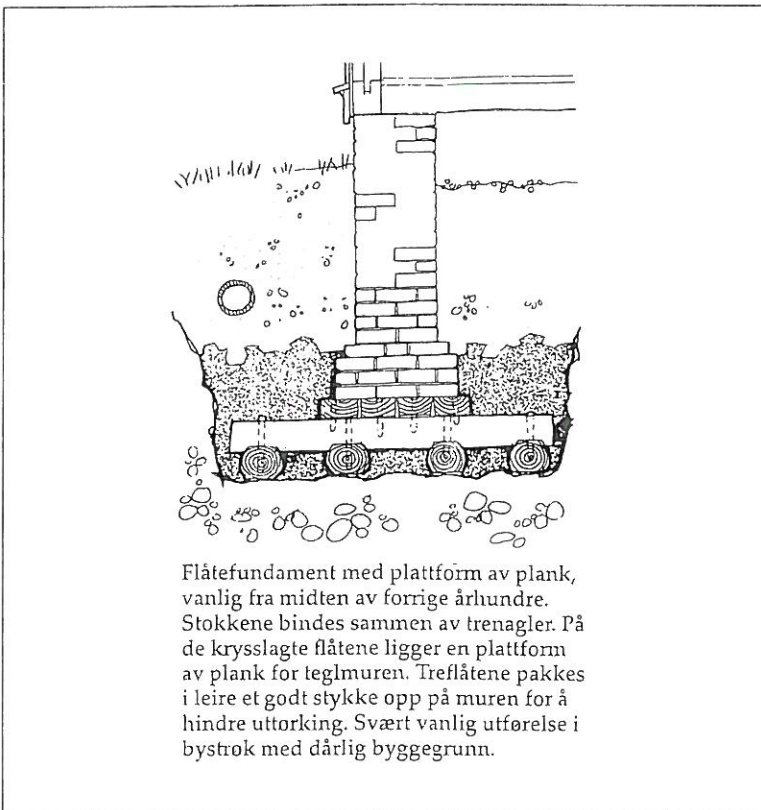 Flåtefundament med plattform av plank,
vanlig fra midten av forrige århundre.
Stokkene bindes sammen av trenagler. På
de krysslagte flåtene ligger en plattform
av plank for teglmuren. Treflåtene pakkes
i leire et godt stykke opp på muren for å
hindre uttørking. Svært vanlig utførelse i
bystrøk med dårlig byggegrunn.